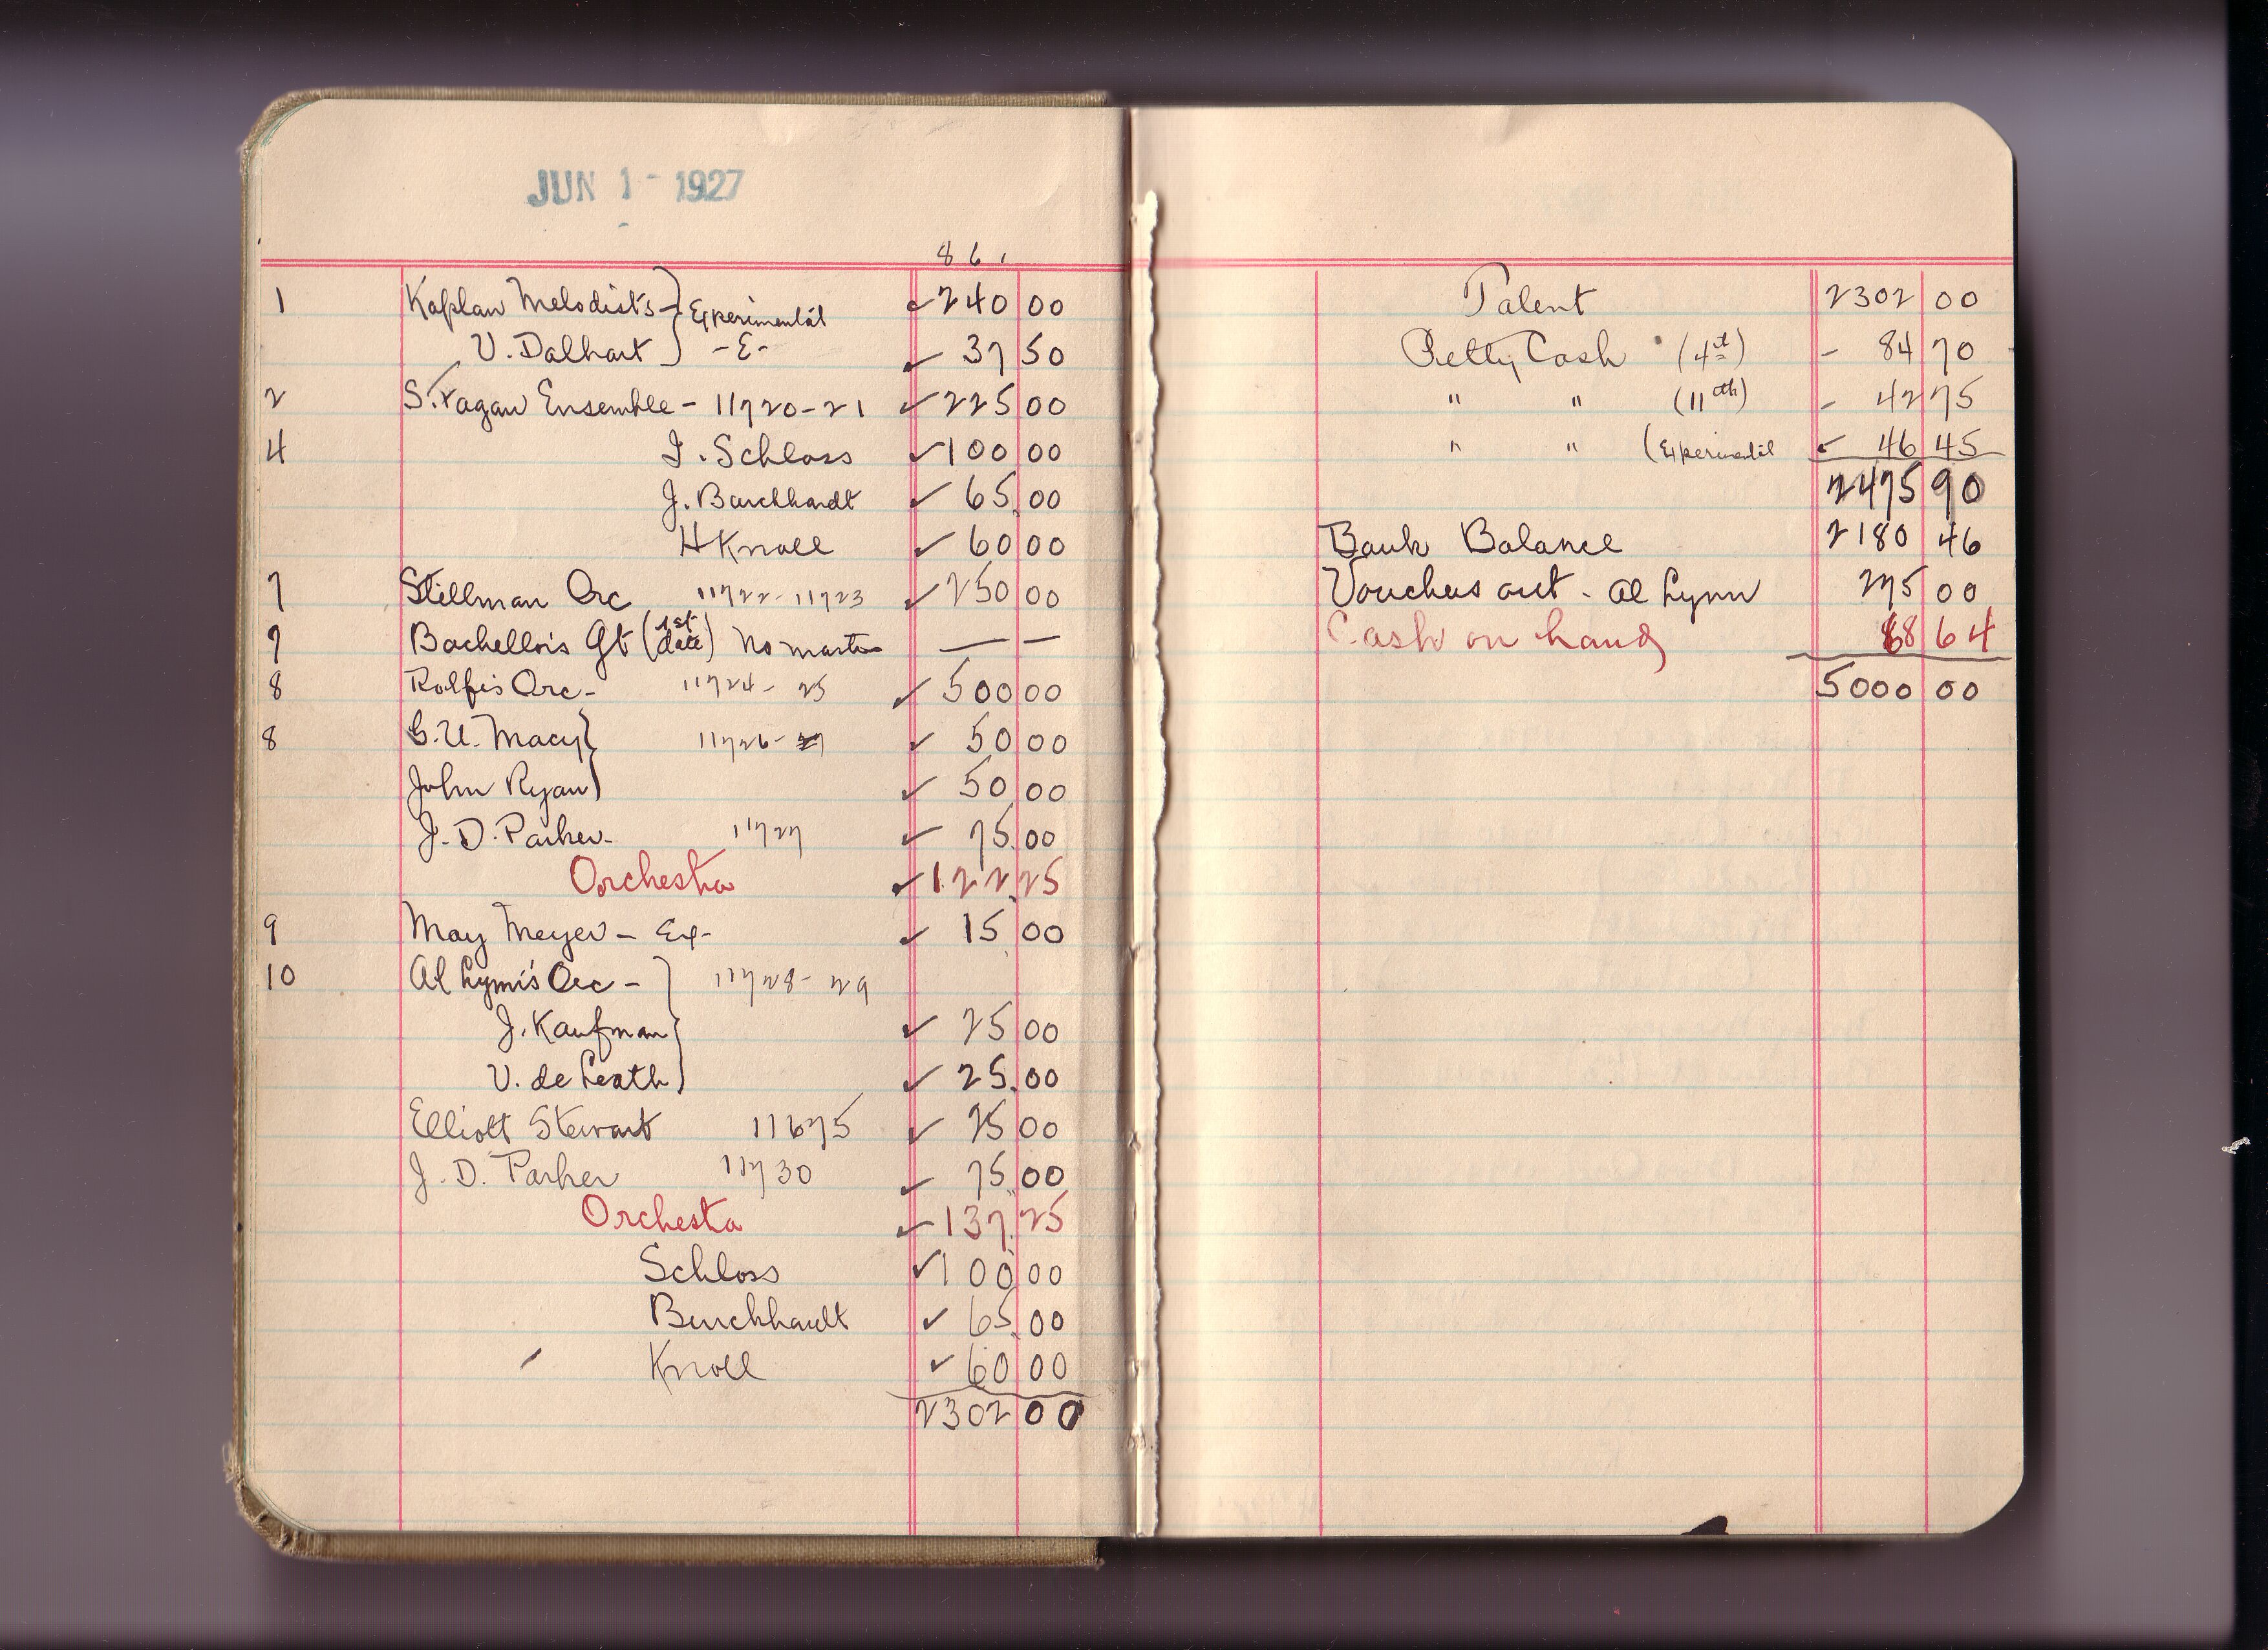 JUN 1 - 1927
861
1 Kaplan Melodists - } Experimental ✓ 240 00
V. Dalhart } - E - ✓ 37 50
2 S. Fagan Ensemble - 11720-21 ✓ 225 00
4 I. Schloss ✓ 100 00
J. Burckhardt ✓ 65.00
H Knoll ✓ 60 00
7 Stillman Orc 11722-11723 ✓ 250 00
7 Bachellois Qt (1st date) No master — —
8 Rolfe's Orc - 11724-25 ✓ 500 00
8 G.U. Macy } 11726- ✓ 50 00
John Ryan } ✓ 50 00
J. D. Parker - 11727 ✓ 75.00
Orchesta ✓ 122.25
9 May Meyer - Ex - ✓ 15 00
10 Al Lynn's Orc - } 11728-29
J. Kaufman } ✓ 25 00
V. de Leath } ✓ 25.00
Elliott Stewart 11675 ✓ 25 00
J. D. Parker 11730 ✓ 75 00
Orchesta ✓ 137.25
Schloss ✓ 100 00
Burckhardt ✓ 65.00
Knoll ✓ 60 00
2302 00
Talent 2302 00
Petty Cash (4th) - 84 70
" " (11th) - 42 75
" " (Experimental ✓ 46 45
2475 90
Bank Balance 2180 46
Vouchers out - Al Lynn 275 00
Cash on hand 68 64
5000 00